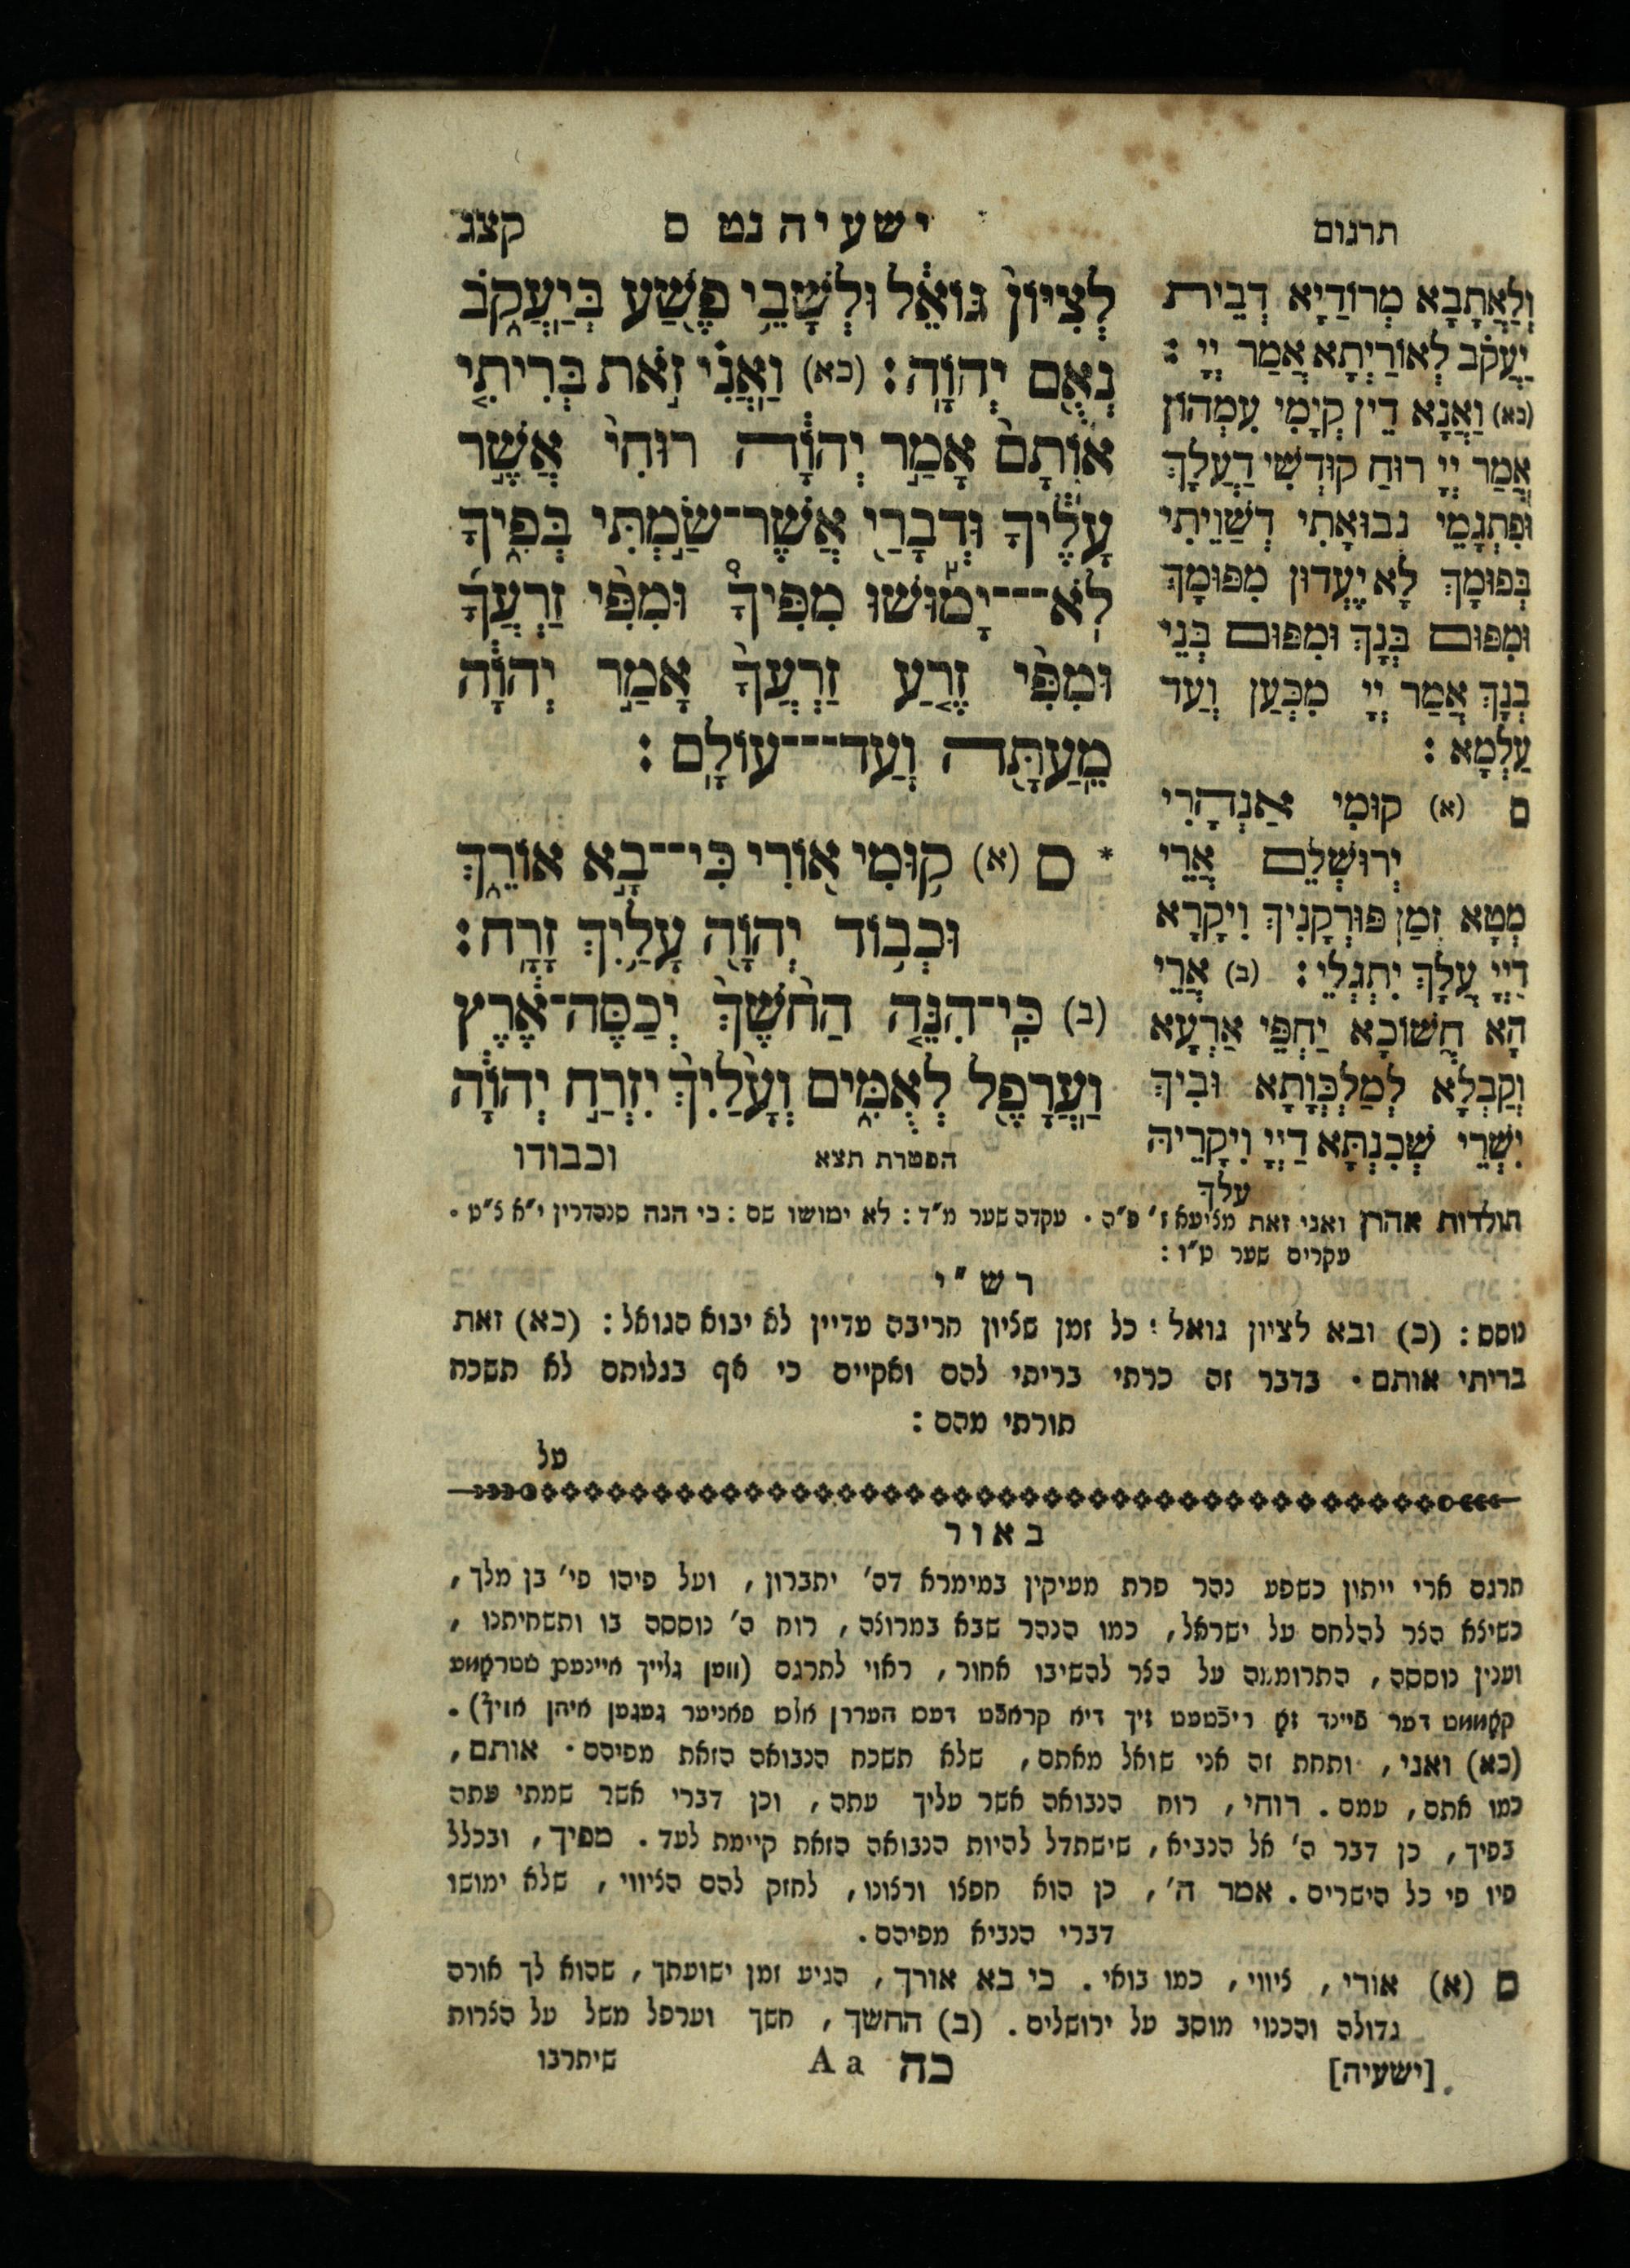 תרגום
ישעיה נט ס
קצג
וְלַאֲתָבָא מְרוֹדַיָא דְבֵית
יַעֲקֹב לְאוֹרַיְתָא אֲמַר יְיָ :
(כא) וַאֲנָא דֵין קְיָמִי עִמְהוֹן
אֲמַר יְיָ רוּחַ קוּדְשִׁי דַעֲלָךְ
וּפִתְגָמֵי נְבוּאָתִי דְשַׁוֵיתִי
בְּפוּמָךְ לָא יֶעְדוּן מִפּוּמָךְ
וּמִפּוּם בְּנָךְ וּמִפּוּם בְּנֵי
בְנָךְ אֲמַר יְיָ מִכְּעַן וְעַד
עַלְמָא :
ס (א) קוּמִי אַנְהָרִי
יְרוּשְׁלֵם אֲרֵי
מְטָא זְמַן פּוּרְקָנִיךְ וִיקָרָא
דַיְיָ עֲלָךְ יִתְגְלֵי : (ב) אֲרֵי
הָא חֲשׁוֹכָא יַחְפֵּי אַרְעָא
וְקַבְלָא לְמַלְכְּוָתָא וּבִיךְ
יִשְׁרֵי שְׁכִנְתָּא דַיְיָ וִיקָרֵיהּ
עלך
לְצִיּוֹן֙ גּוֹאֵ֔ל וּלְשָׁבֵ֥י פֶ֖שַׁע בְּיַֽעֲקֹ֑ב
נְאֻ֖ם יְהוָֽה : (כא) וַאֲנִ֗י זֹ֣את בְּרִיתִ֤י
אוֹתָם֙ אָמַ֣ר יְהוָ֔ה רוּחִי֙ אֲשֶׁ֣ר
עָלֶ֔יךָ וּדְבָרַ֖י אֲשֶׁר־שַׂ֣מְתִּי בְּפִ֑יךָ
לֹֽא־יָמ֡וּשׁוּ מִפִּיךָ֩ וּמִפִּ֨י זַרְעֲךָ֜
וּמִפִּ֨י זֶ֤רַע זַרְעֲךָ֙ אָמַ֣ר יְהוָ֔ה
מֵעַתָּ֖ה וְעַד־עוֹלָֽם :
* ס (א) ק֥וּמִי א֖וֹרִי כִּי־בָ֣א אוֹרֵ֑ךְ
וּכְב֥וֹד יְהוָ֖ה עָלַ֥יִךְ זָרָֽח :
(ב) כִּֽי־הִנֵּ֤ה הַחֹ֙שֶׁךְ֙ יְכַסֶּה־אֶ֔רֶץ
וַעֲרָפֶ֖ל לְאֻמִּ֑ים וְעָלַ֙יִךְ֙ יִזְרַ֣ח יְהוָ֔ה
הפטרת תצא
וכבודו
תולדות אהרן ואני זאת מציעא ז' פ"ה . עקדה שער מ"ד : לא ימושו שם : כי הנה סנהדרין י"א צ"ט .
עקרים שער ט"ו :
רש"י
נוסס : (כ) ובא לציון גואל : כל זמן שציון חריבה עדיין לא יבוא הגואל : (כא) זאת
בריתי אותם . בדבר זה כרתי בריתי להם ואקיים כי אף בגלותם לא תשכח
תורתי מהם :
על
באור
תרגם ארי ייתון כשפע נהר פרת מעיקין במימרא דה' יתברון, ועל פיהו פי' בן מלך,
כשיצא הצר להלחם על ישראל, כמו הנהר שבא במרוצה, רוח ה' נוססה בו ותשחיתנו,
וענין נוססה, התרוממה על הצר להשיבו אחור, ראוי לתרגם (ווען גלייך איינעם שטראָמע
קאָממט דער פיינד זאָ ריכטעט זיך דיא קראפט דעס העררן אלס פאניער געגען איהן אויף).
(כא) ואני, ותחת זה אני שואל מאתם, שלא תשכח הנבואה הזאת מפיהם . אותם,
כמו אתם, עמם. רוחי, רוח הנבואה אשר עליך עתה, וכן דברי אשר שמתי עתה
בפיך, כן דבר ה' אל הנביא, שישתדל להיות הנבואה הזאת קיימת לעד. מפיך, ובכלל
פיו פי כל הישרים. אמר ה', כן הוא חפצו ורצונו, לחזק להם הציווי, שלא ימושו
דברי הנביא מפיהם.
ס (א) אורי, ציווי, כמו בואי. כי בא אורך, הגיע זמן ישועתך, שהוא לך אורה
גדולה והכנוי מוסב על ירושלים. (ב) החשך, חשך וערפל משל על הצרות
[ישעיה]
כה Aa
שיתרבו